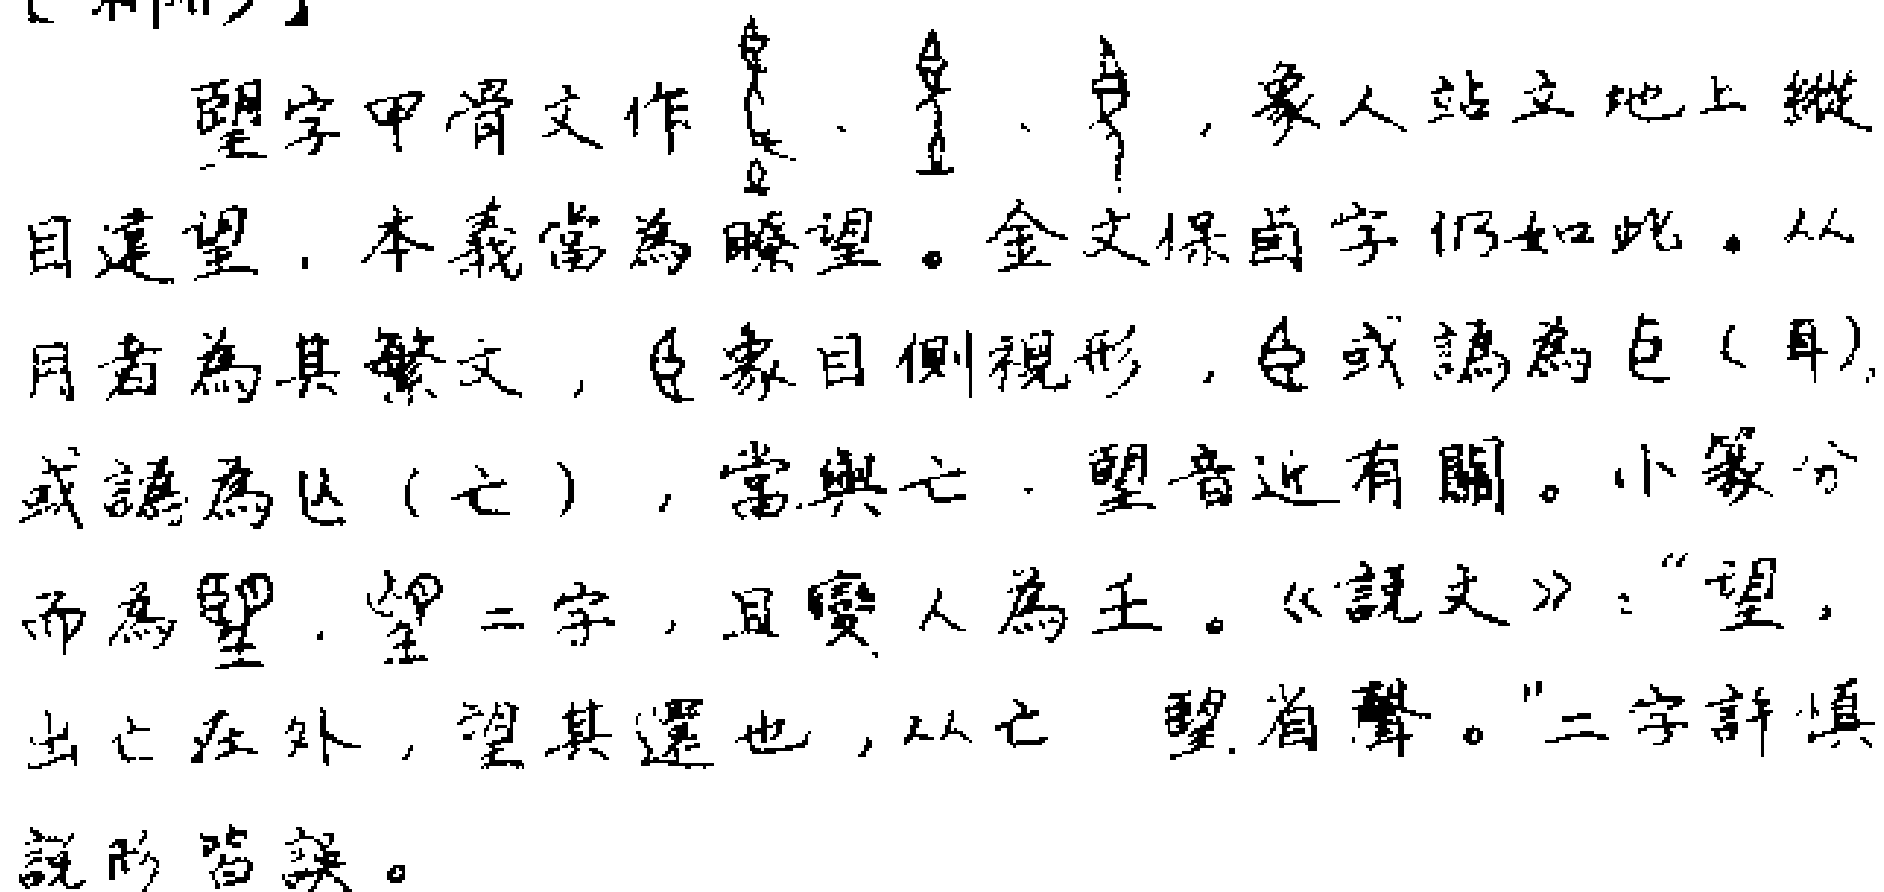 朢字甲骨文作、、,象人站立地上縱
目遠望,本義當為瞭望。金文保卣字仍如此。从
月者為其繁文,象目側視形,或譌為(耳),
或譌為(亡),當與亡、朢音近有關。小篆分
而為朢、望二字,且變人為壬。《說文》:“望,
出亡在外,望其還也,从亡 朢省聲。”二字許慎
說形皆誤。